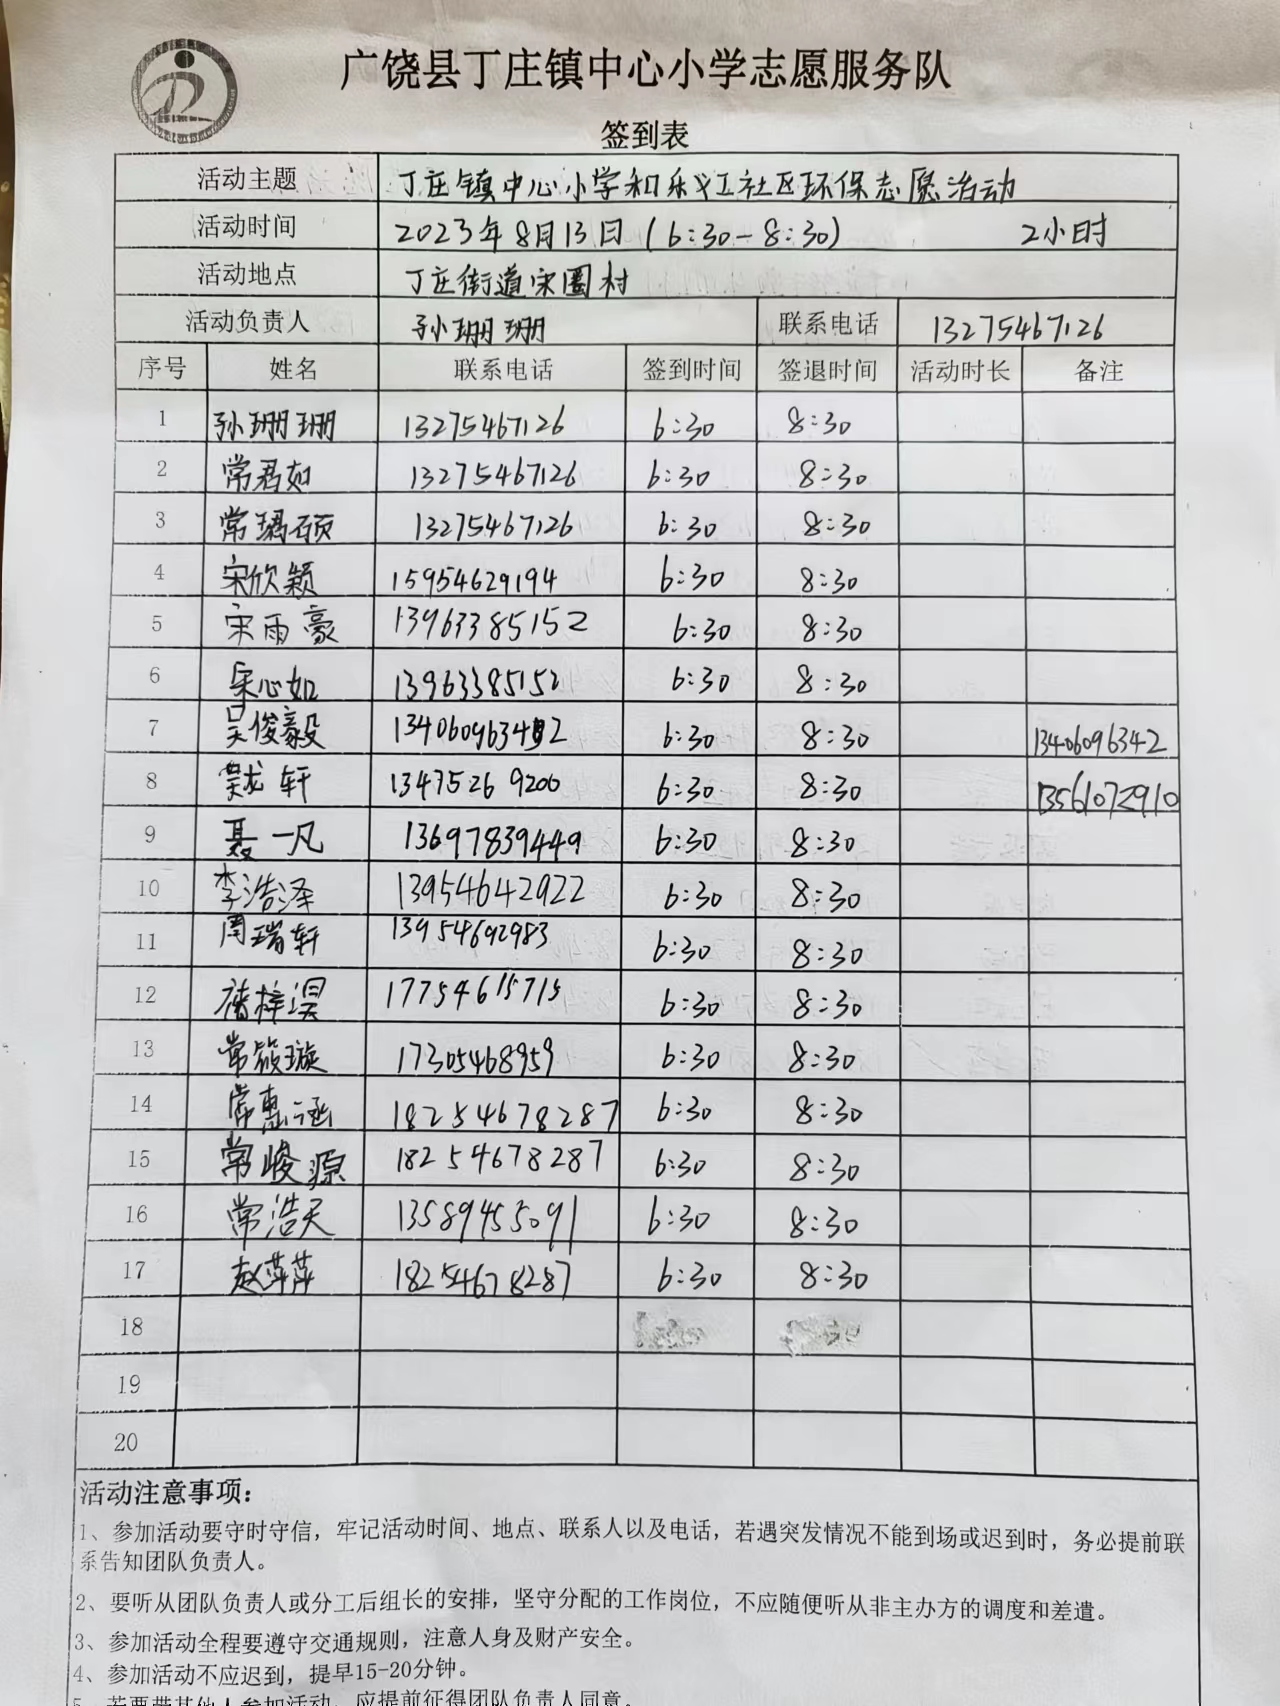 广饶县丁庄镇中心小学志愿服务队
签到表
活动主题 丁庄镇中心小学和乐义工社区环保志愿活动
活动时间 2023年8月13日(6:30-8:30) 2小时
活动地点 丁庄街道宋圈村
活动负责人 孙珊珊 联系电话 13275467126
序号 姓名 联系电话 签到时间 签退时间 活动时长 备注
1 孙珊珊 13275467126 6:30 8:30
2 常君如 13275467126 6:30 8:30
3 常瑀硕 13275467126 6:30 8:30
4 宋欣颖 15954629194 6:30 8:30
5 宋雨豪 13963385152 6:30 8:30
6 宋心如 13963385152 6:30 8:30
7 吴俊毅 6:30 8:30 13406096342
8 轩 13475269200 6:30 8:30 13561072910
9 聂一凡 13697839449 6:30 8:30
10 李浩泽 13954642922 6:30 8:30
11 周瑞轩 13954692983 6:30 8:30
12 梓淏 17754615715 6:30 8:30
13 常筱璇 17305468959 6:30 8:30
14 常惠涵 18254678287 6:30 8:30
15 常峻源 18254678287 6:30 8:30
16 常浩天 13589455091 6:30 8:30
17 赵萍萍 18254678287 6:30 8:30
18
19
20
活动注意事项:
1、参加活动要守时守信，牢记活动时间、地点、联系人以及电话，若遇突发情况不能到场或迟到时，务必提前联
系告知团队负责人。
2、要听从团队负责人或分工后组长的安排，坚守分配的工作岗位，不应随便听从非主办方的调度和差遣。
3、参加活动全程要遵守交通规则，注意人身及财产安全。
4、参加活动不应迟到，提早15-20分钟。
5、若要带其他人参加活动，应提前征得团队负责人同意。